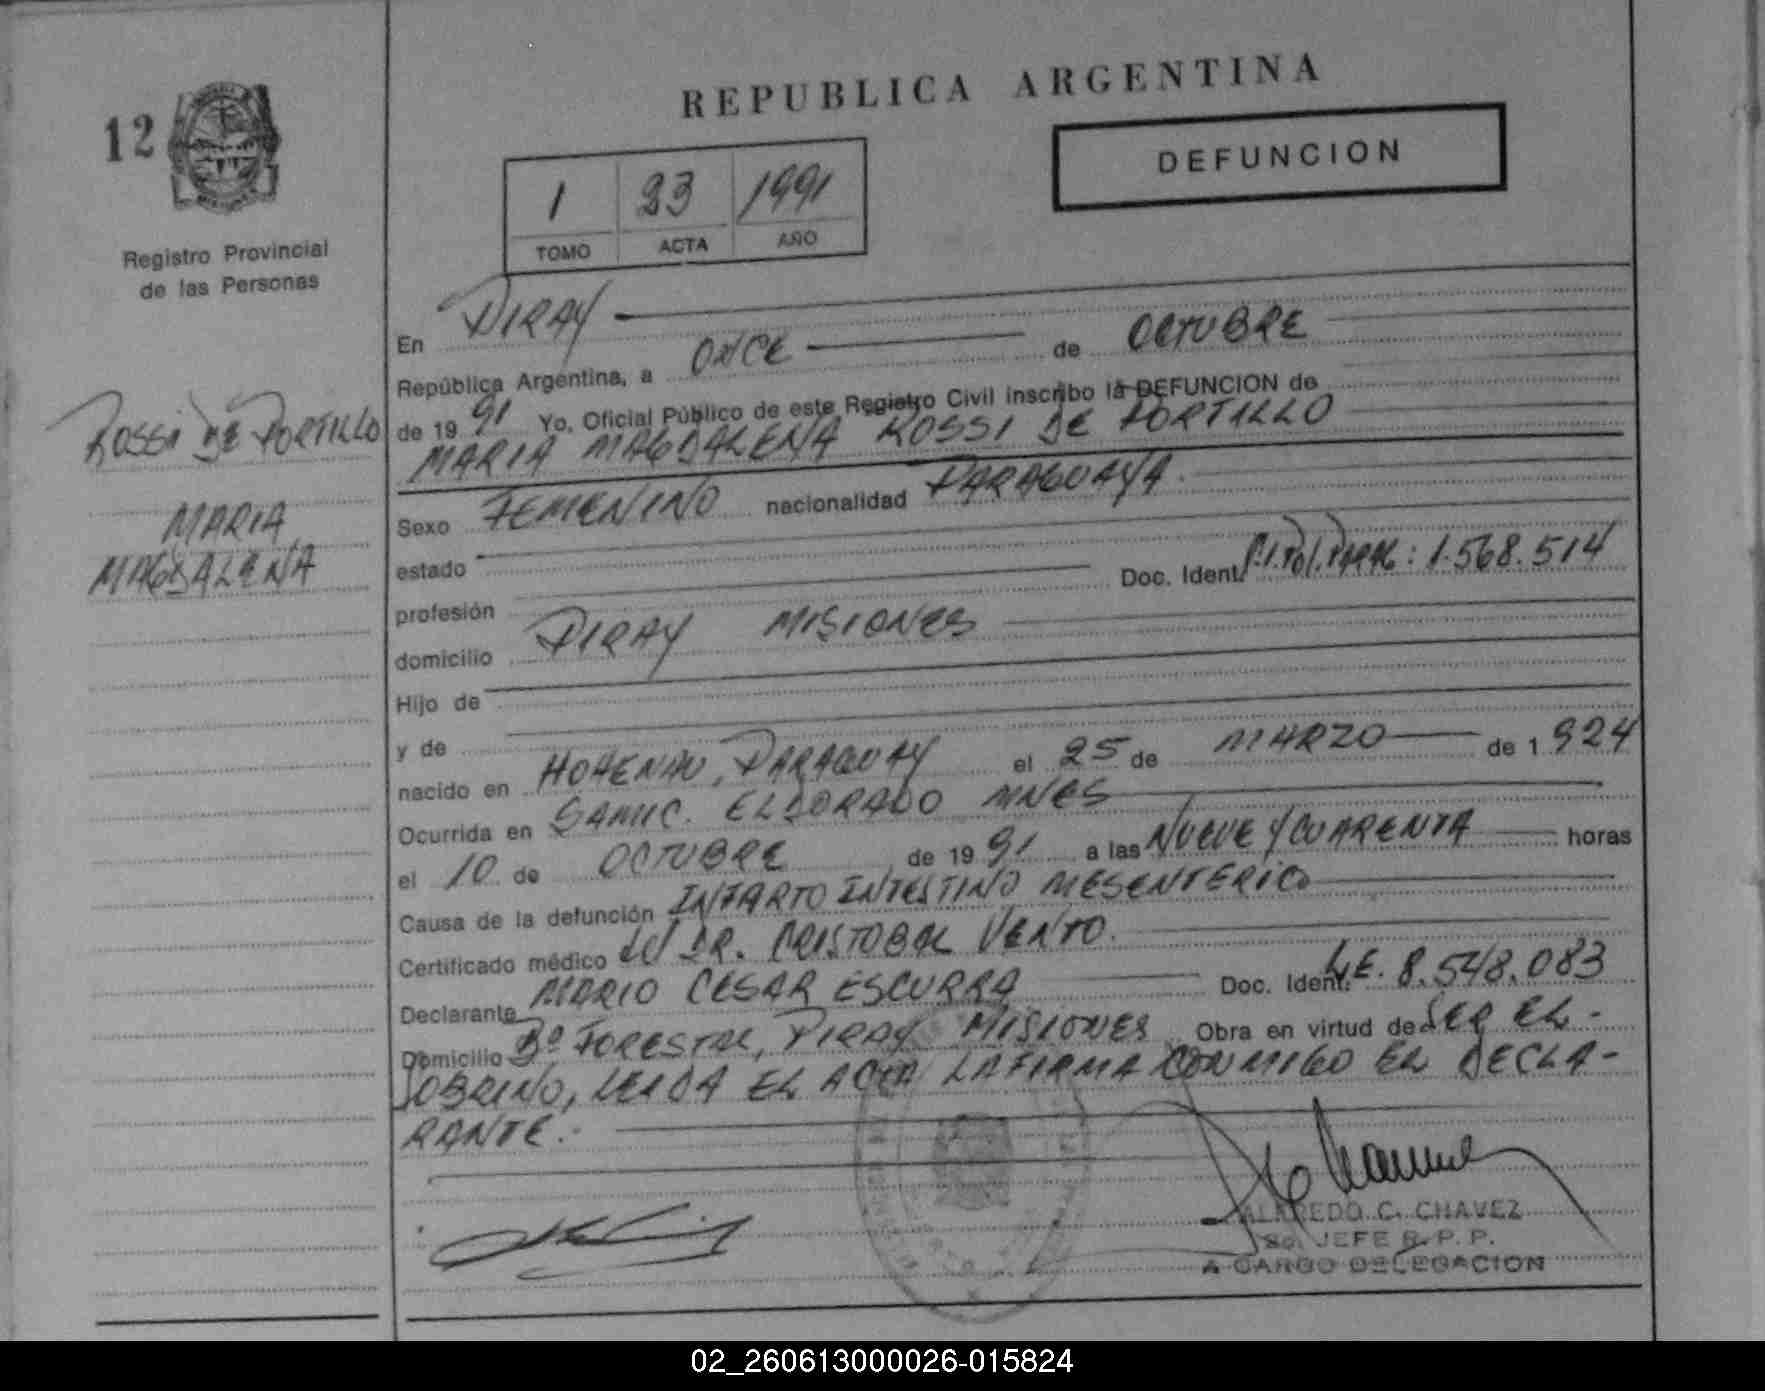 REPUBLICA ARGENTINA
12
DEFUNCION
1 23 1991
TOMO ACTA AÑO
Registro Provincial
de las Personas
ROSSI DE PORTILLO
MARIA
MAGDALENA
En PIRAY
República Argentina, a ONCE de OCTUBRE
de 19 91 Yo, Oficial Público de este Registro Civil inscribo la DEFUNCION de
MARIA MAGDALENA ROSSI DE PORTILLO
Sexo FEMENINO nacionalidad PARAGUAYA.
estado
profesión Doc. Ident. C.I. Pol. PARAG: 1.568.514
domicilio PIRAY MISIONES
Hijo de
y de
nacido en HOHENAU, PARAGUAY el 25 de MARZO de 1 924
Ocurrida en SAMIC. ELDORADO MNES
el 10 de OCTUBRE de 19 91 a las NUEVE Y CUARENTA horas
Causa de la defunción INFARTO INTESTINO MESENTERICO
Certificado médico DR. CRISTOBAL VENTO.
Declarante MARIO CESAR ESCURRA Doc. Ident. L.E. 8.548.083
Domicilio Bº FORESTAL, PIRAY MISIONES Obra en virtud de SER EL-
SOBRINO, LEIDA EL ACTA LA FIRMA CONMIGO EL DECLA-
RANTE.-
ALFREDO C. CHAVEZ
So. JEFE R. P. P.
A CARGO DELEGACION
02_260613000026-015824